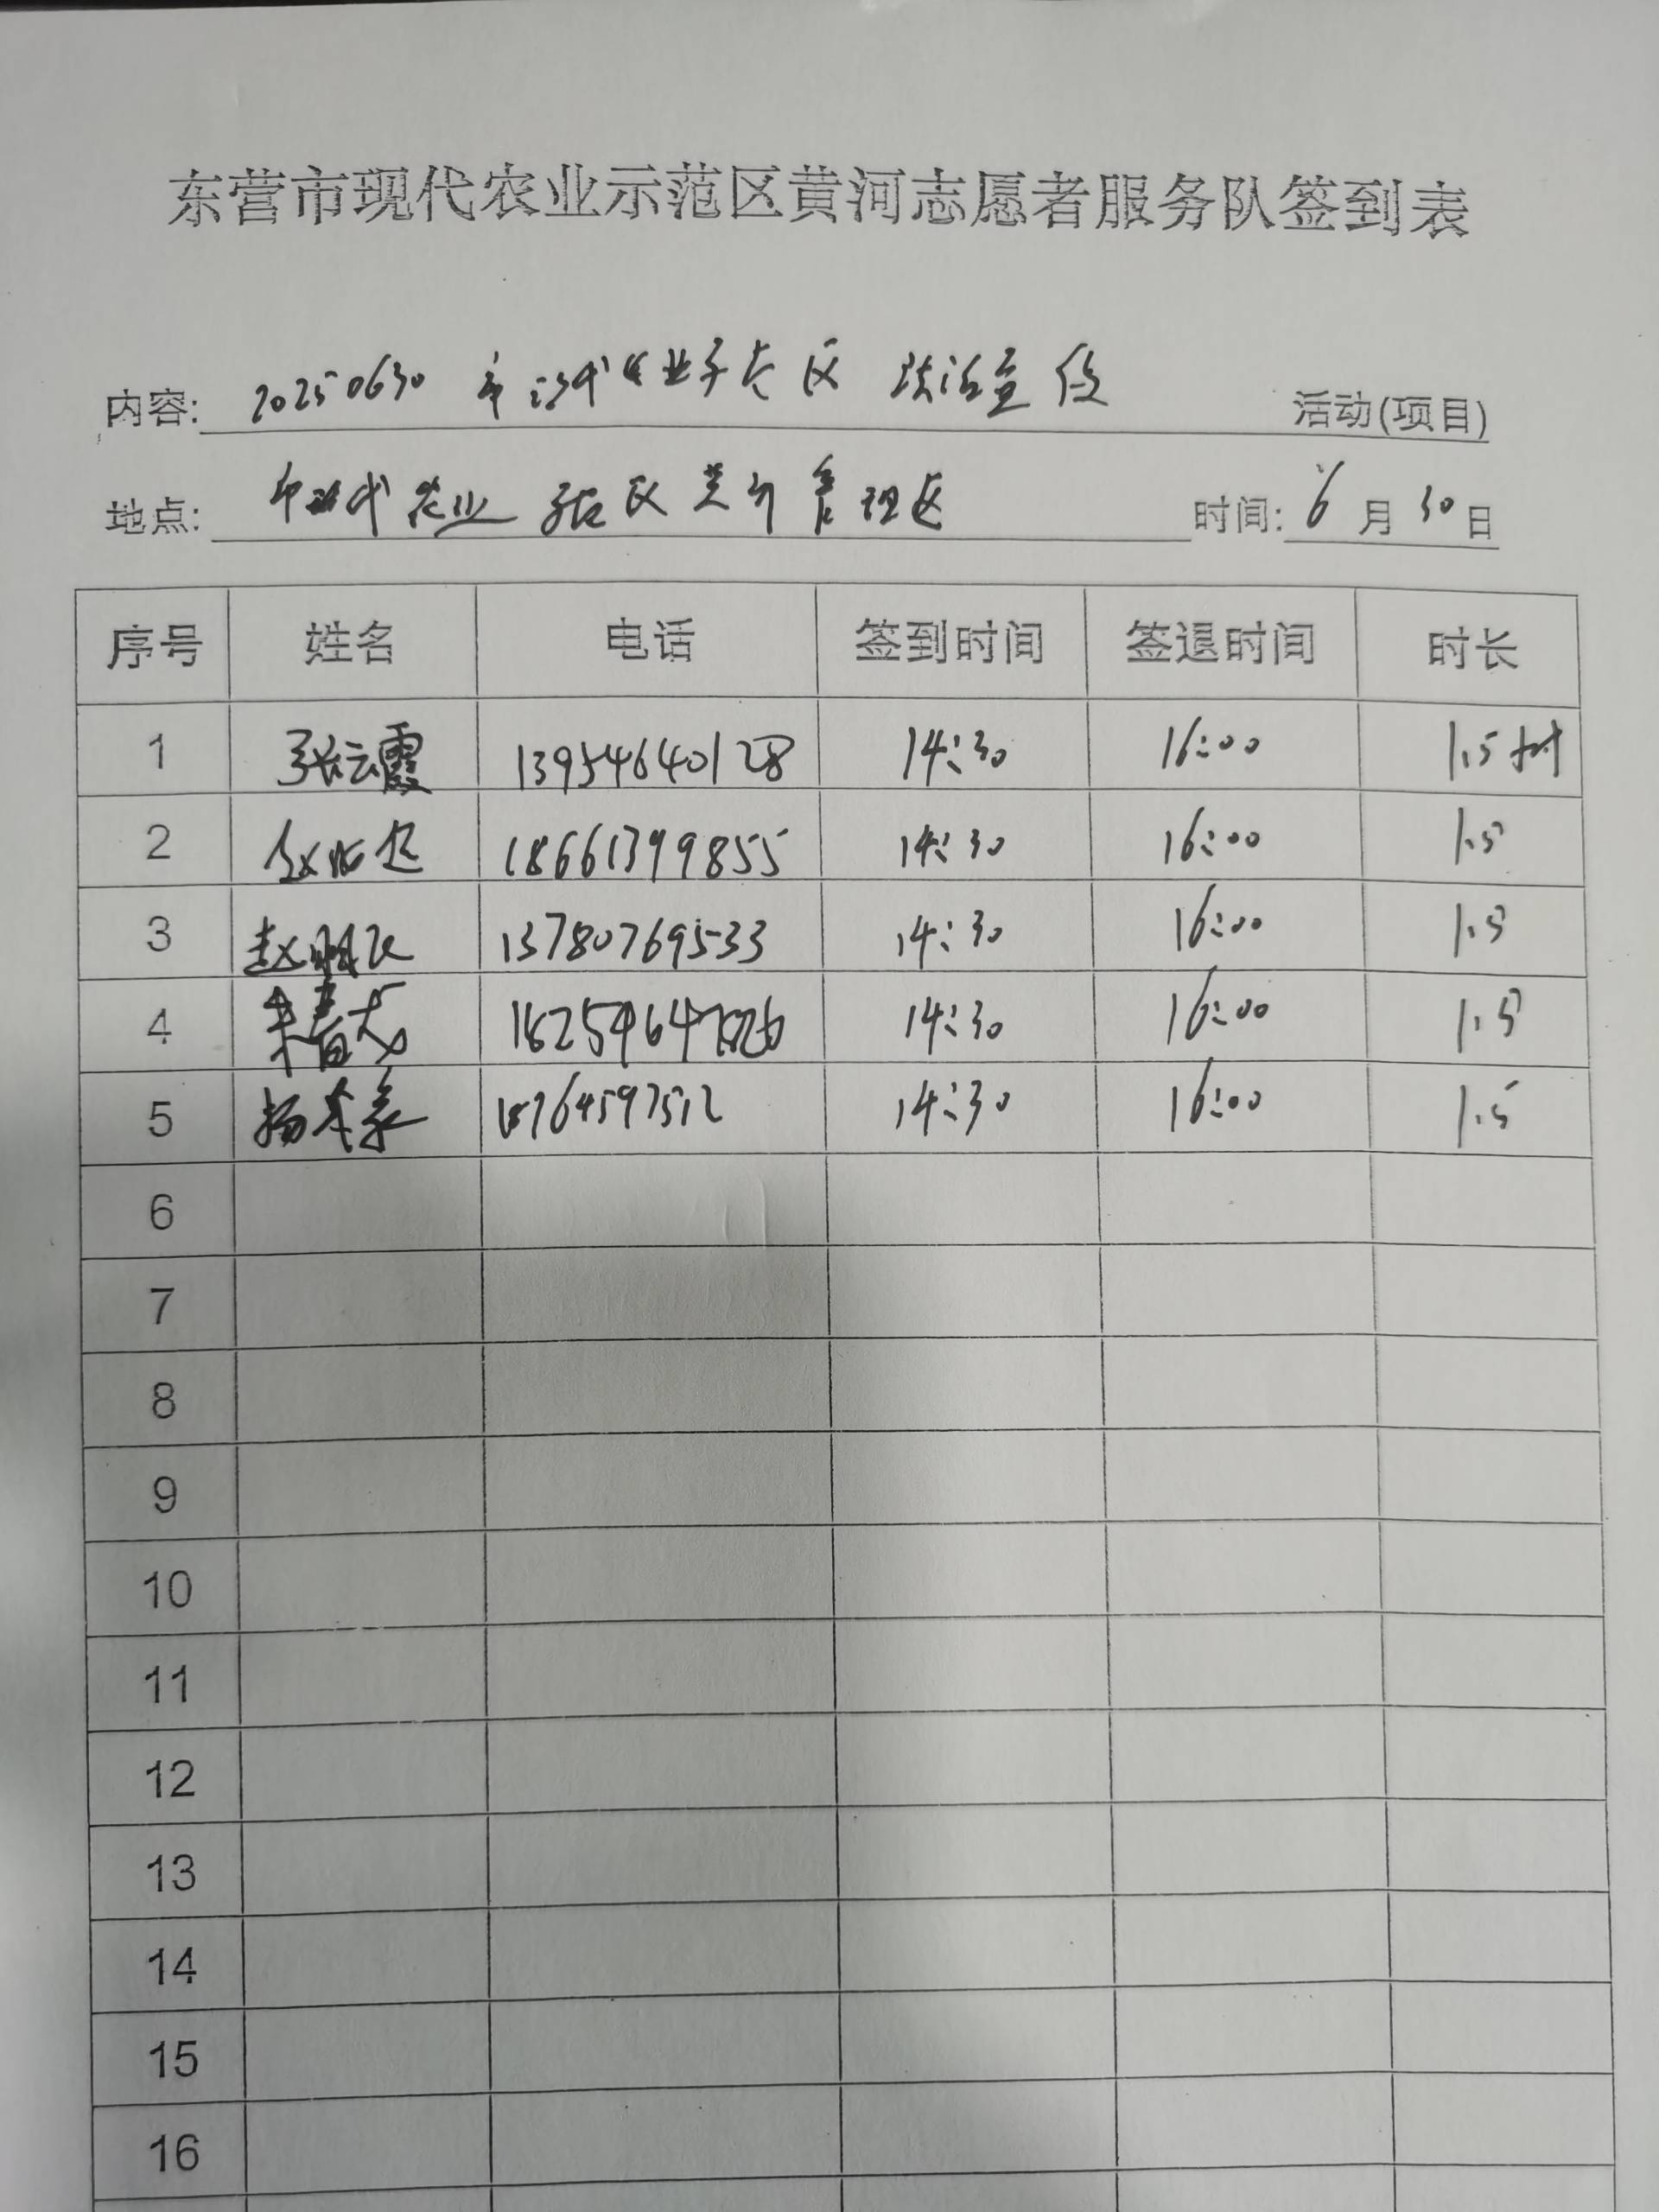 东营市现代农业示范区黄河志愿者服务队签到表
内容: 20250630 市现代农业示范区 法治宣传 活动(项目)
地点: 市现代农业示范区 管理区 时间: 6月30日
序号 姓名 电话 签到时间 签退时间 时长
1 张云霞 13954640128 14:30 16:00 1.5小时
2 18661399855 14:30 16:00 1.5
3 13780769533 14:30 16:00 1.5
4 14:30 16:00 1.5
5 14:30 16:00 1.5
6
7
8
9
10
11
12
13
14
15
16